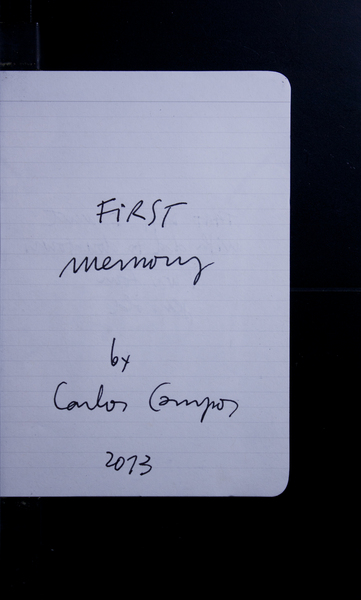 FiRST
memory
by
Carlos Campos
2013